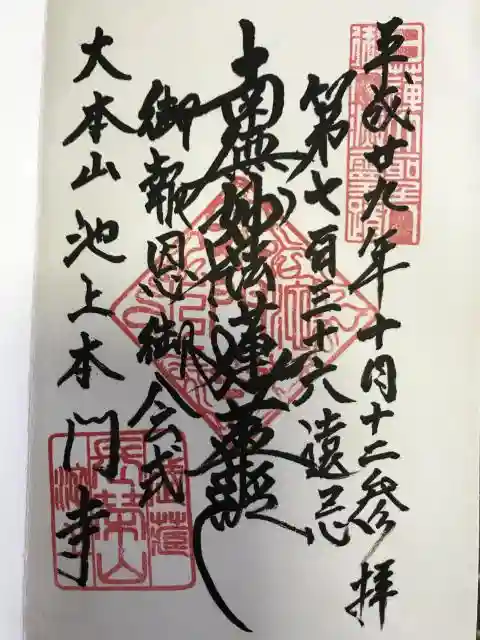 平成廿九年十月十二参拝
第七百三十六遠忌
南無妙法蓮華経
御報恩御会式
大本山池上本門寺
長栄山